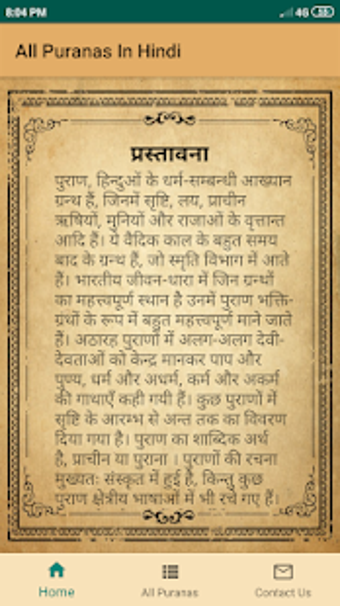 8:04 PM 4G 55
All Puranas In Hindi
प्रस्तावना
पुराण, हिन्दुओं के धर्म-सम्बन्धी आख्यान
ग्रन्थ हैं, जिनमें सृष्टि, लय, प्राचीन
ऋषियों, मुनियों और राजाओं के वृत्तान्त
आदि हैं। ये वैदिक काल के बहुत समय
बाद के ग्रन्थ हैं, जो स्मृति विभाग में आते
हैं। भारतीय जीवन-धारा में जिन ग्रन्थों
का महत्त्वपूर्ण स्थान है उनमें पुराण भक्ति-
ग्रंथों के रूप में बहुत महत्त्वपूर्ण माने जाते
हैं। अठारह पुराणों में अलग-अलग देवी-
देवताओं को केन्द्र मानकर पाप और
पुण्य, धर्म और अधर्म, कर्म और अकर्म
की गाथाएँ कही गयी हैं। कुछ पुराणों में
सृष्टि के आरम्भ से अन्त तक का विवरण
दिया गया है। पुराण का शाब्दिक अर्थ
है, प्राचीन या पुराना । पुराणों की रचना
मुख्यतः संस्कृत में हुई है, किन्तु कुछ
पुराण क्षेत्रीय भाषाओं में भी रचे गए हैं।
Home All Puranas Contact Us